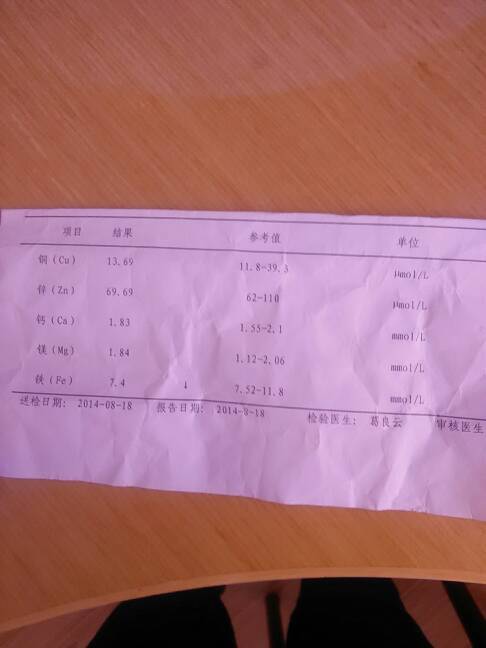 项目 结果 参考值 单位
铜（Cu） 13.69 11.8-39.3 μmol/L
锌（Zn） 69.69 62-110 μmol/L
钙（Ca） 1.83 1.55-2.1 mmol/L
镁（Mg） 1.84 1.12-2.06 mmol/L
铁（Fe） 7.4 ↓ 7.52-11.8 mmol/L
送检日期： 2014-08-18 报告日期： 2014-8-18 检验医生： 葛良云 审核医生